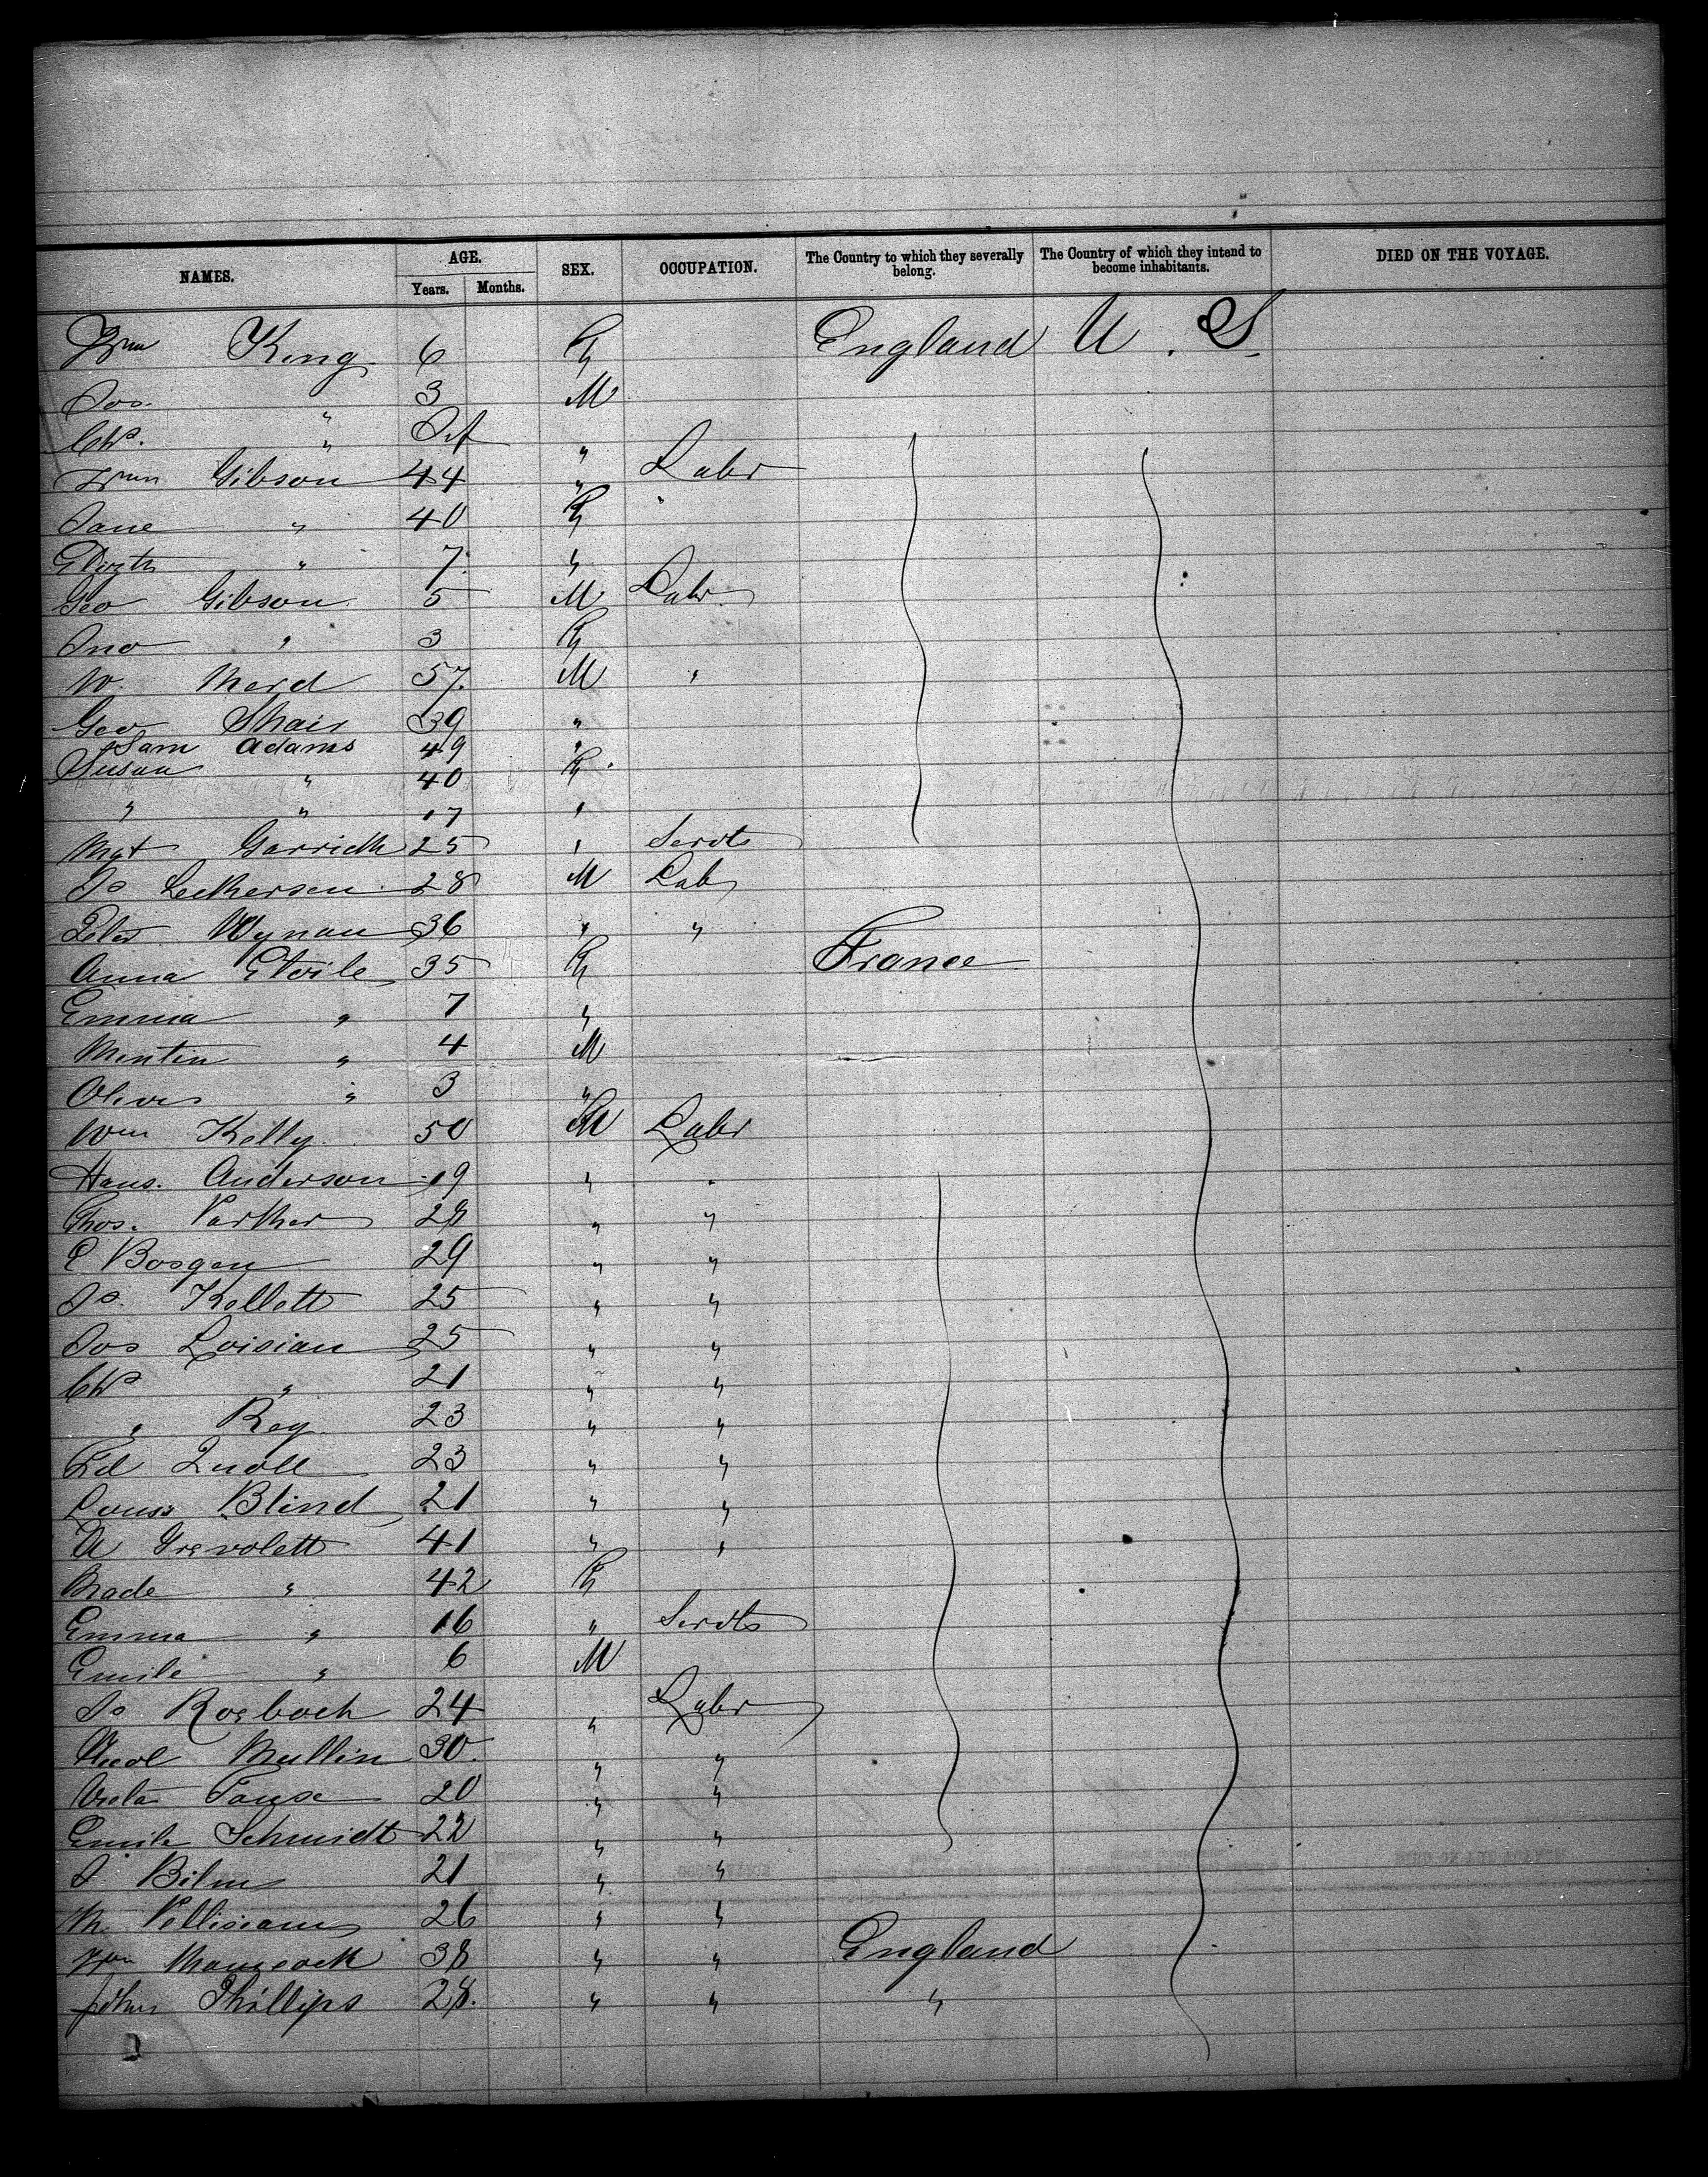 NAMES. AGE. Years. Months. SEX. OCCUPATION. The Country to which they severally belong. The Country of which they intend to become inhabitants. DIED ON THE VOYAGE.
Wm King 6 F England U. S.
Jos. " 3 M
Chs. " Inf "
Wm Gibson 44 " Labr
Jane " 40 F
Elizth " 7 "
Geo Gibson 5 M Labr
Jno " 3 F
W. Merd 57 M "
Geo Shair 39 "
Sam Adams 49 "
Susan " 40 F
" " 17 "
Mgt 25 " Servts
Js 28 M Lab
Peter Wynau 36 " "
Anna Etoile 35 F France
Emma " 7 "
Mentin " 4 M
Oliver " 3 "
Wm Kelly 50 M Labr
Hans. Anderson 19 " "
Thos. Parker 28 " "
E Bosgen 29 " "
Js. Kellett 25 " "
Jos Loisian 25 " "
Chs " 21 " "
" Rey 23 " "
Ed 23 " "
Louis Blind 21 " "
U Grevolett 41 " "
" 42 F
Emma " 16 " Servts
Emile " 6 M
Js Rosboch 24 " Labr
Nicol Mullin 30 " "
20 " "
Emile Schmidt 22 " "
21 " "
M. 26 " "
Wm 38 " " England
John Phillips 28 " " "